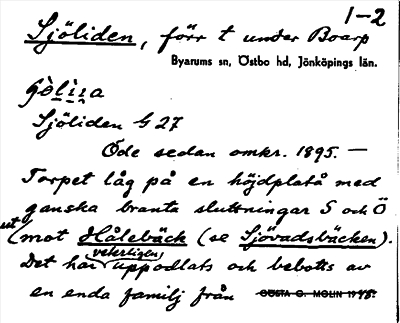 1-2
Sjöliden, förr t under Boarp
Byarums sn, Östbo hd, Jönköpings län.
Sjöliden G 27
Öde sedan omkr. 1895. —
Torpet låg på en höjdplatå med
ganska branta sluttningar S och Ö
(mot Hålebäck (se Sjövadsbäcken).
Det har veterligen uppodlats och bebotts av
en enda familj från GÖSTA G. MOLIN 1948.